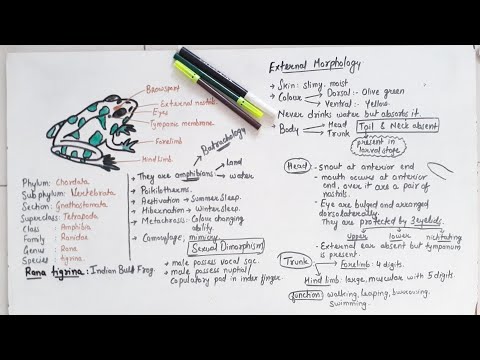 Browspot
External nostrils
Eyes
Tympanic membrane
Forelimb
Hind limb
Batrachology
Phylum: Chordata
Subphylum: Vertebrata
Section: Gnathostomata
Superclass: Tetrapoda
Class : Amphibia
Family : Ranidae
Genus : Rana
Species : tigrina.
Rana tigrina : Indian Bull Frog.
They are amphibians
Land
water
Poikilotherms.
Aestivation → Summer Sleep.
Hibernation → Winter Sleep.
Metachrosis : Colour changing
ability.
Camouflage, mimicry
Sexual Dimorphism
male possess vocal sac.
male possess nuptial/
copulatory pad in index finger.
External Morphology
Skin: slimy, moist
Colour Dorsal :- Olive green
Ventral :- Yellow.
Never drinks water but absorbs it.
Body Head
Trunk
Tail & Neck absent
present in
larval stage
Head - snout at anterior end
- mouth occurs at anterior
end, over it are a pair of
nostrils.
- Eye are bulged and arranged
dorsolaterally.
They are protected by 3 eyelids.
upper lower nictitating
- External ear absent but tympanum
is present.
Trunk → Forelimb : 4 digits.
Hind limb : large, muscular with 5 digits.
Function: walking, leaping, burrowing,
swimming.